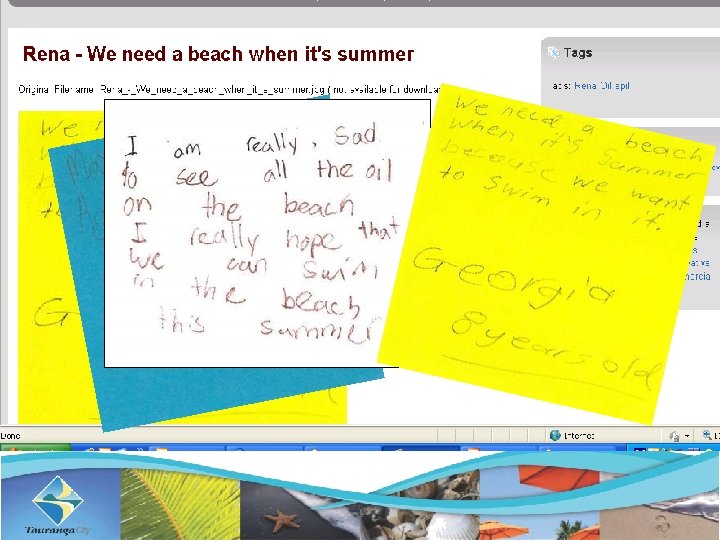 Rena - We need a beach when it's summer
Tags
Original Filename: Rena_-_We_need_a_beach_when_it_s_summer.jpg ( not available for download
Tags: Rena Oil spill
We ne
I am really, sad
to see all the oil
on the beach
I really hope that
we can swim
in the beach
this summer
We need a beach
when it's summer
because we want
to swim in it.
Georgia
8 years old
Done
Internet
Tauranga City